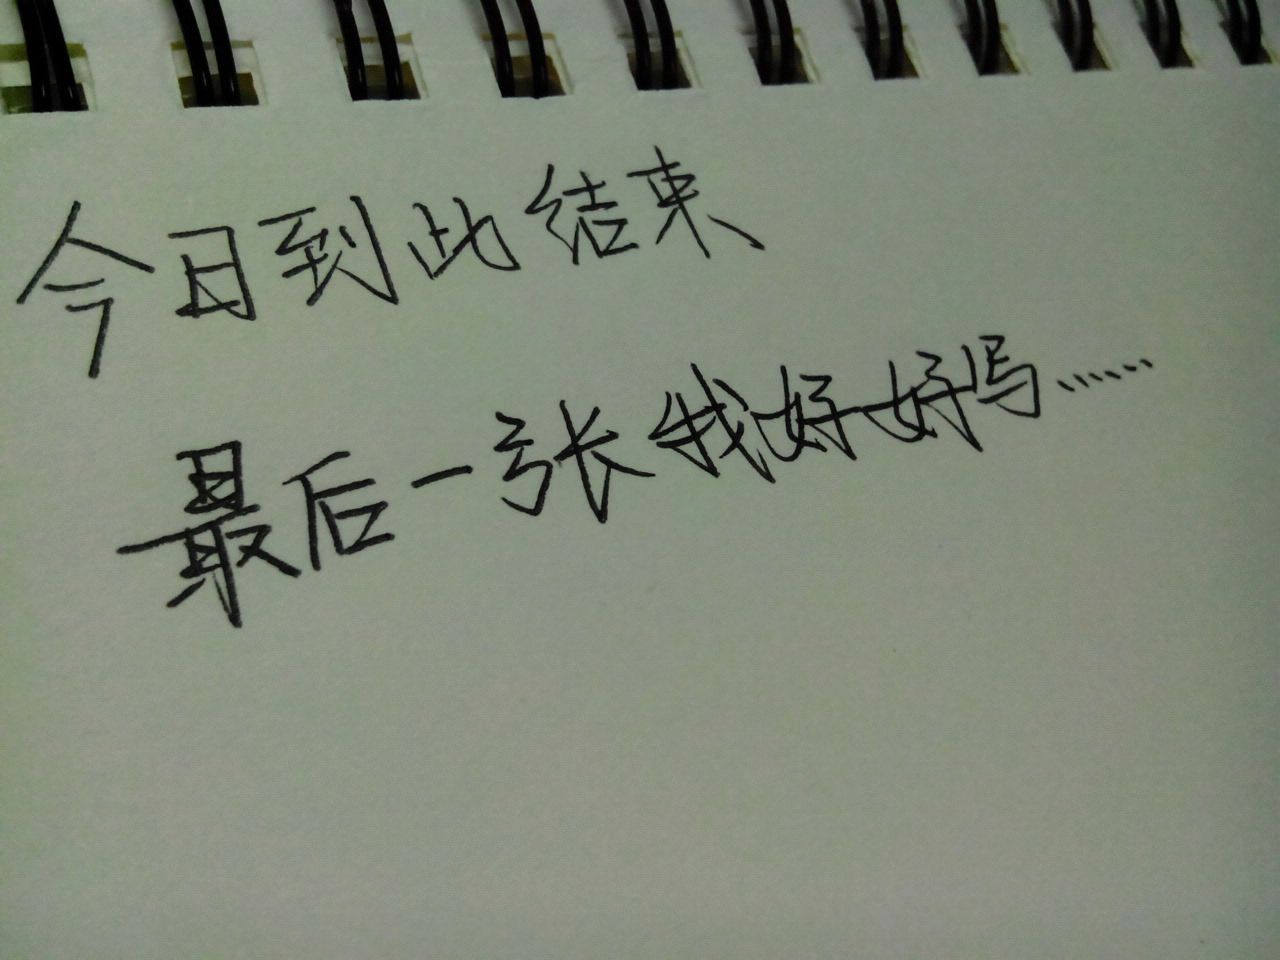 今日到此结束
最后一张我好好写……